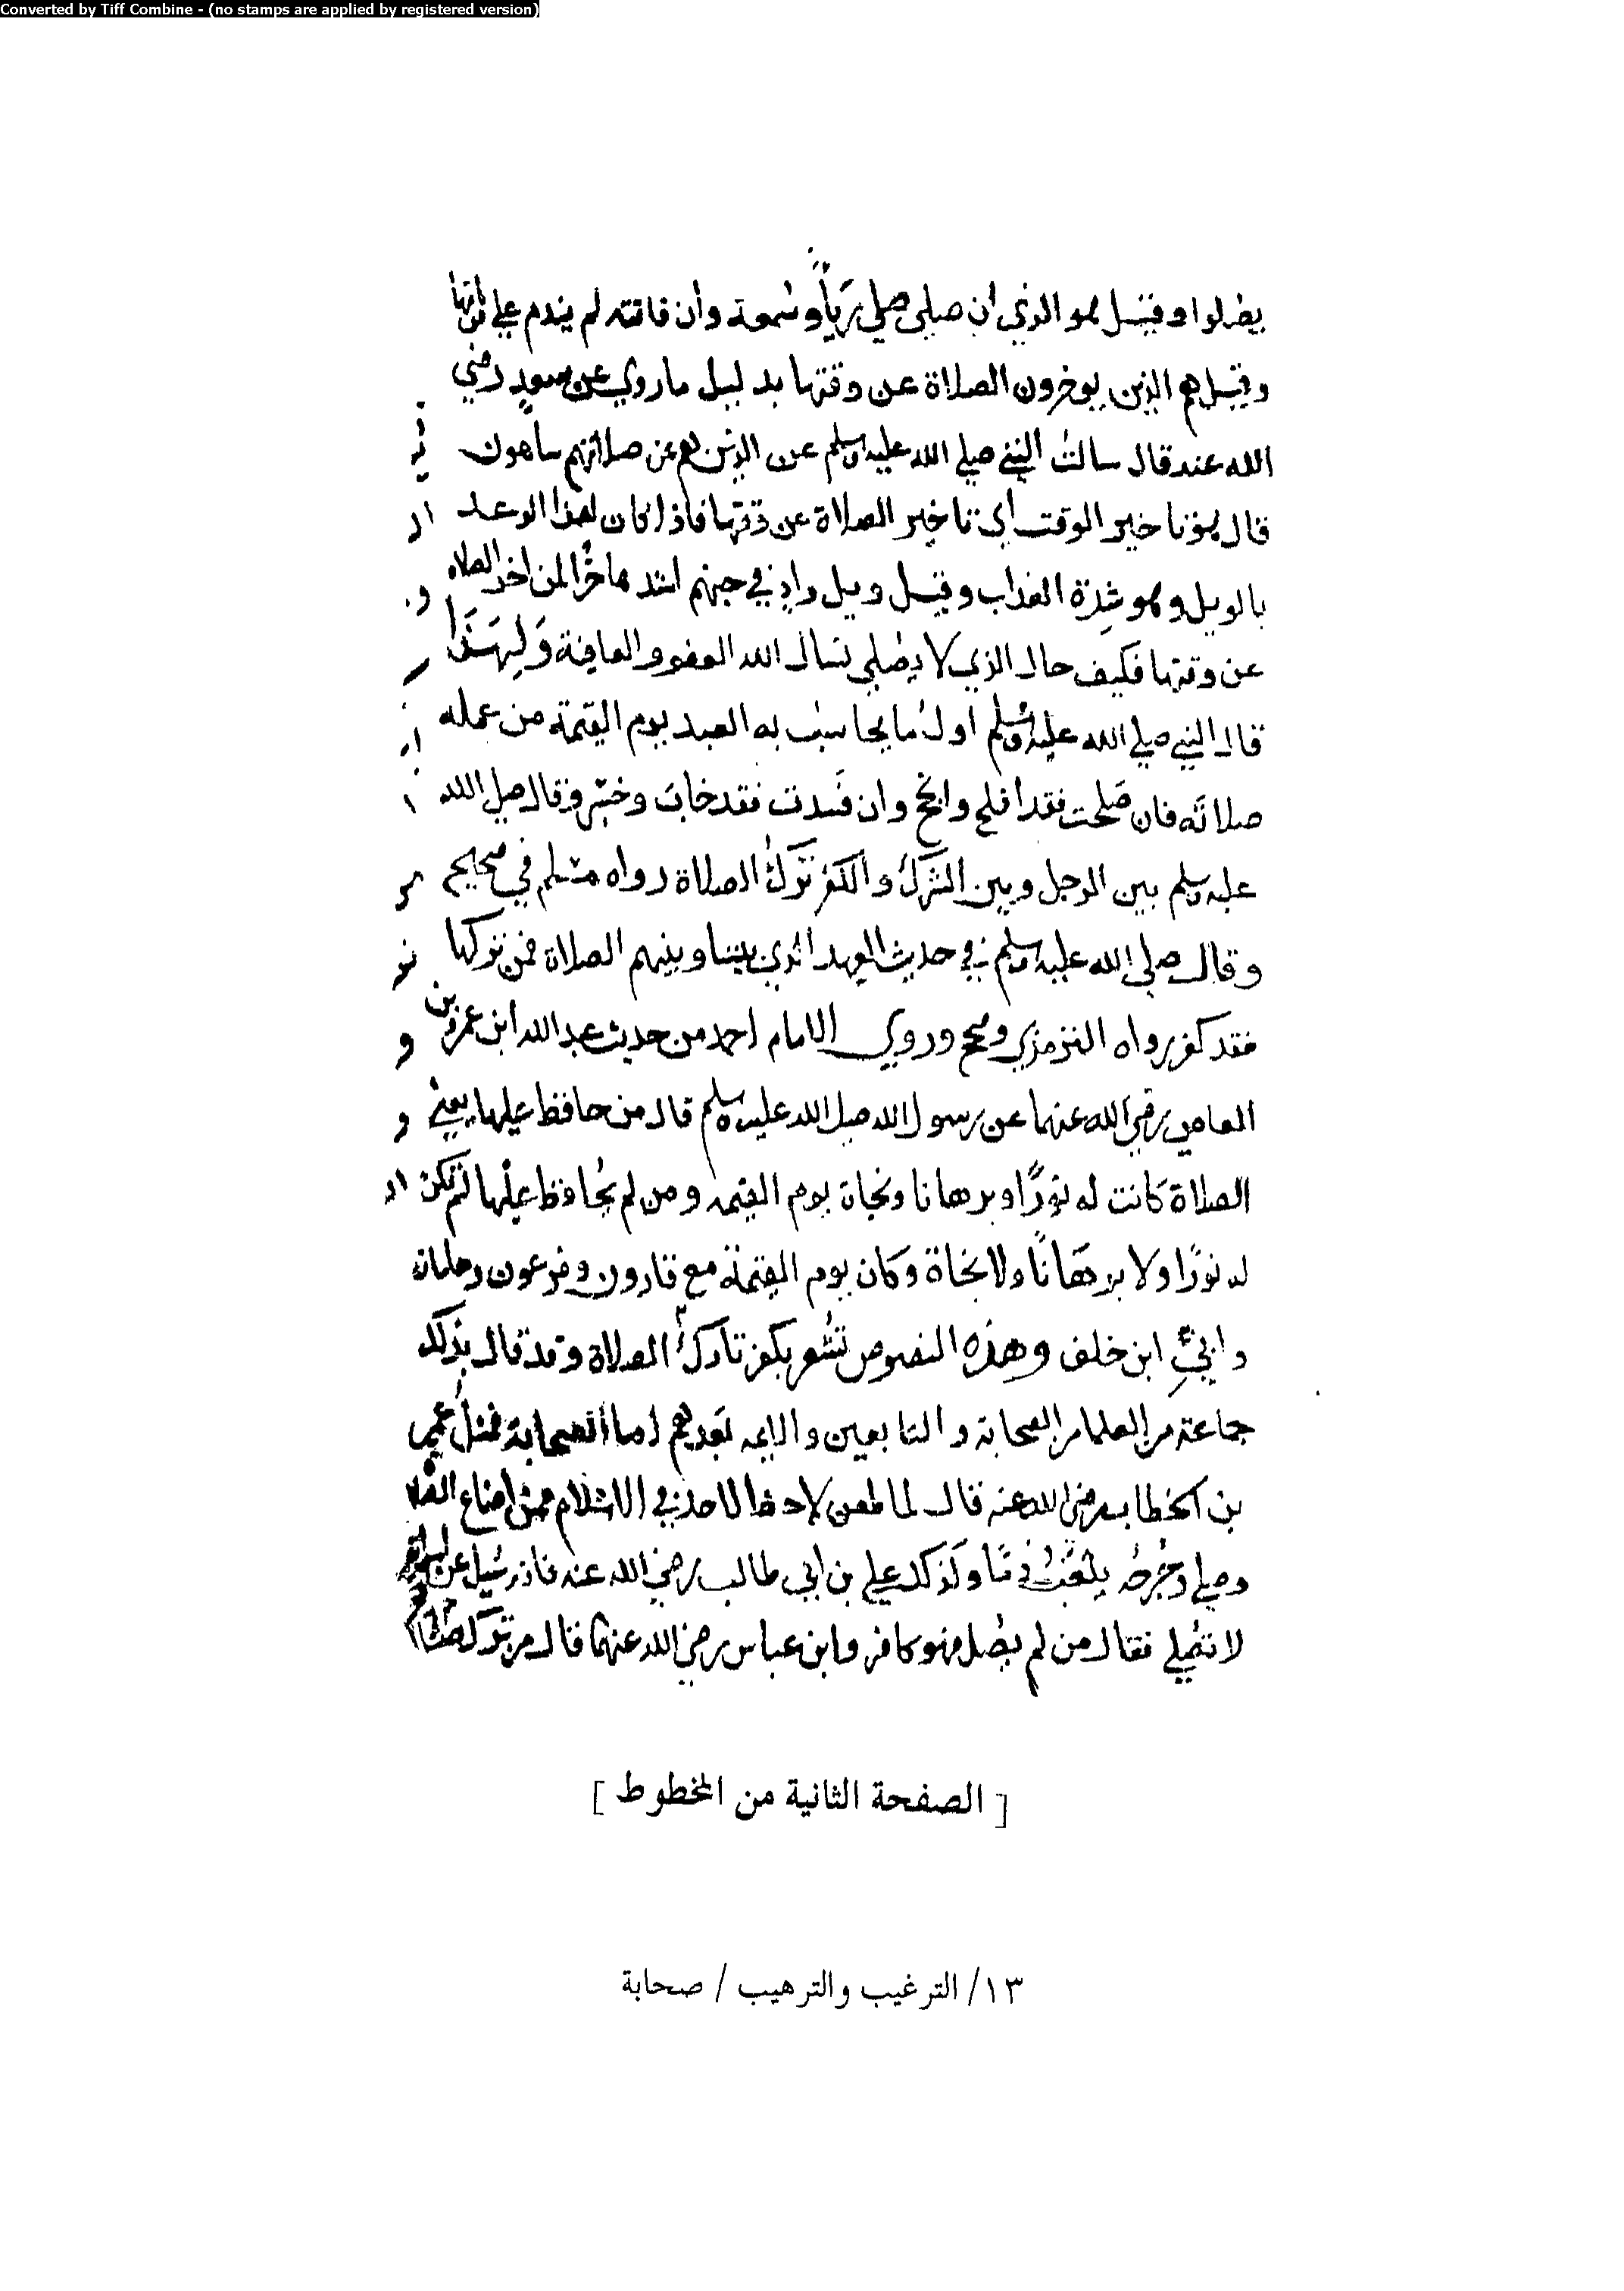 Converted by Tiff Combine - (no stamps are applied by registered version)
يصلوا وقيل هو الذي ان صلى صلى رياً وسمعة وان فاتته لم يندم على
وقيل هم الذين يوخرون الصلاة عن وقتها بدليل ما روي عن سعدٍ رضي
الله عنه قال سالت النبي صلى الله عليه وسلم عن الذين هم عن صلاتهم ساهون
قال هو تاخير الوقت اي تاخير الصلاة عن وقتها فاذا كان هذا الوعد
بالويل وهو شِدة العذاب وقيل ويل وادٍ في جهنم اشد ها حرًا لمن اخر الصلاه
عن وقتها فكيف حال الذي لا يصلي نسال الله العفو والعافية وَلِهَذَا
قال النبي صلى الله عليه وسلم اول ما يحاسب به العبد يوم القيمة من عمله
صلاته فان صَلحت فقد افلح وانجح وان فسدت فقد خاب وخسر وقال صلى الله
عليه وسلم بين الرجل وبين الشرك والكفر تَركُ الصلاة رواه مسلم في صحيح
وقال صلى الله عليه وسلم في حديث العهد الذي بيننا وبينهم الصلاة فمن تركها
فقد كفر رواه الترمذي وصح وروي الامام احمد من حديث عبد الله ابن عمرو بن
العاص رضي الله عنهما عن رسول الله صلى الله عليه وسلم قال من حافظ عليها يعني
الصلاة كانت له نورًا وبرهانا ونجاة يوم القيمه ومن لم يُحافظ عليها لم تكن
له نورًا ولا برهَانًا ولا نجاة وكان يوم القيمة مع قارون وفرعون وهامان
وابيِّ ابن خلف وهذه النصوص تشعر بكفر تارك الصلاة وقد قال بذلك
جماعة من العلما من الصحابة والتابعين والايمه بَعدهم اما الصحابة فمثل عمر
بن الخطاب رضي الله عنه قال لما طعن لا حظ لاحد في الاسلام ممن اضاع الصلاة
وصلى وجُرحُه يثعَبُ دمًا وكذلك علي بن ابي طالب رضي الله عنه فانه سُيل عن
لا تصلي فقال من لم يصل فهو كافر وابن عباس رضي الله عنهما قال من ترك
[ الصفحة الثانية من المخطوط ]
١٣/ الترغيب والترهيب / صحابة